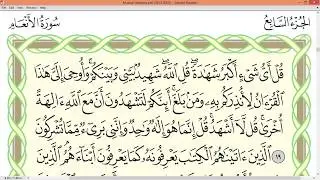 الجزء السابع سورة الأنعام
قُلْ أَيُّ شَيْءٍ أَكْبَرُ شَهَٰدَةً قُلِ ٱللَّهُ شَهِيدٌۢ بَيْنِى وَبَيْنَكُمْ وَأُوحِىَ إِلَىَّ هَٰذَا
ٱلْقُرْءَانُ لِأُنذِرَكُم بِهِۦ وَمَنۢ بَلَغَ أَئِنَّكُمْ لَتَشْهَدُونَ أَنَّ مَعَ ٱللَّهِ ءَالِهَةً
أُخْرَىٰ قُل لَّآ أَشْهَدُ قُلْ إِنَّمَا هُوَ إِلَٰهٌ وَٰحِدٌ وَإِنَّنِى بَرِىٓءٌ مِّمَّا تُشْرِكُونَ ١٩
ٱلَّذِينَ ءَاتَيْنَٰهُمُ ٱلْكِتَٰبَ يَعْرِفُونَهُۥ كَمَا يَعْرِفُونَ أَبْنَآءَهُمُ ٱلَّذِينَ